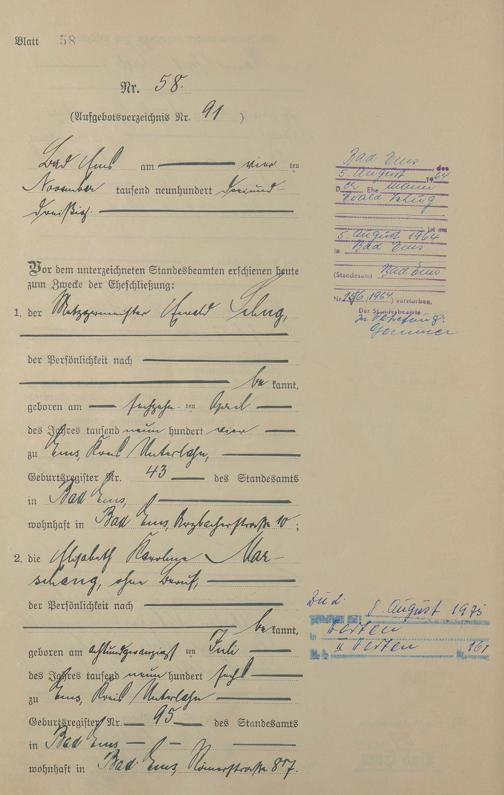 Blatt 58
Nr. 58.
(Aufgebotsverzeichnis Nr. 91 )
Bad Ems am vier ten
November tausend neunhundert dreiund
dreißig.
Vor dem unterzeichneten Standesbeamten erschienen heute
zum Zwecke der Eheschließung:
1. der Metzgermeister Ewald
der Persönlichkeit nach
be kannt,
geboren am sechzehn ten April
des Jahres tausend neun hundert vier
zu Ems, Kreis Unterlahn,
Geburtsregister Nr. 43 des Standesamts
in Bad Ems,
wohnhaft in Bad Ems, Arzbacherstraße 10;
2. die Elisabeth Karoline Mar-
ohne Beruf,
der Persönlichkeit nach
be kannt,
geboren am achtundzwanzigst ten Juli
des Jahres tausend neun hundert sechs
zu Ems, Kreis Unterlahn
Geburtsregister Nr. 95 des Standesamts
in Bad Ems
wohnhaft in Bad Ems, Römerstraße 87.
Bad Ems, den
5. August 1964
D er Ehe mann
Ewald
ist am
5. August 1964
in Bad Ems
(Standesamt Bad Ems
Nr. 136/1964) verstorben.
Der Standesbeamte
In Vertretung:
Zu 2. 8. August 1975